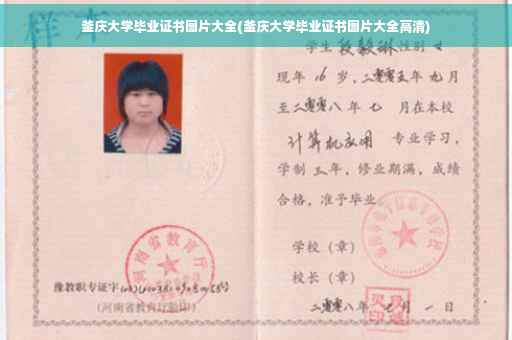 釜庆大学毕业证书图片大全(釜庆大学毕业证书图片大全高清)
样本
学生 段毅琳 性别 女
现年 16 岁,二零零五年 九月
至二零零八年 七 月在本校
计算机应用 专业学习,
学制 三年,修业期满,成绩
合格,准予毕业
学校(章)
校长(章)
二零零八年 月 一 日
河南省教育厅
豫教职专证字
(河南省教育厅验印)